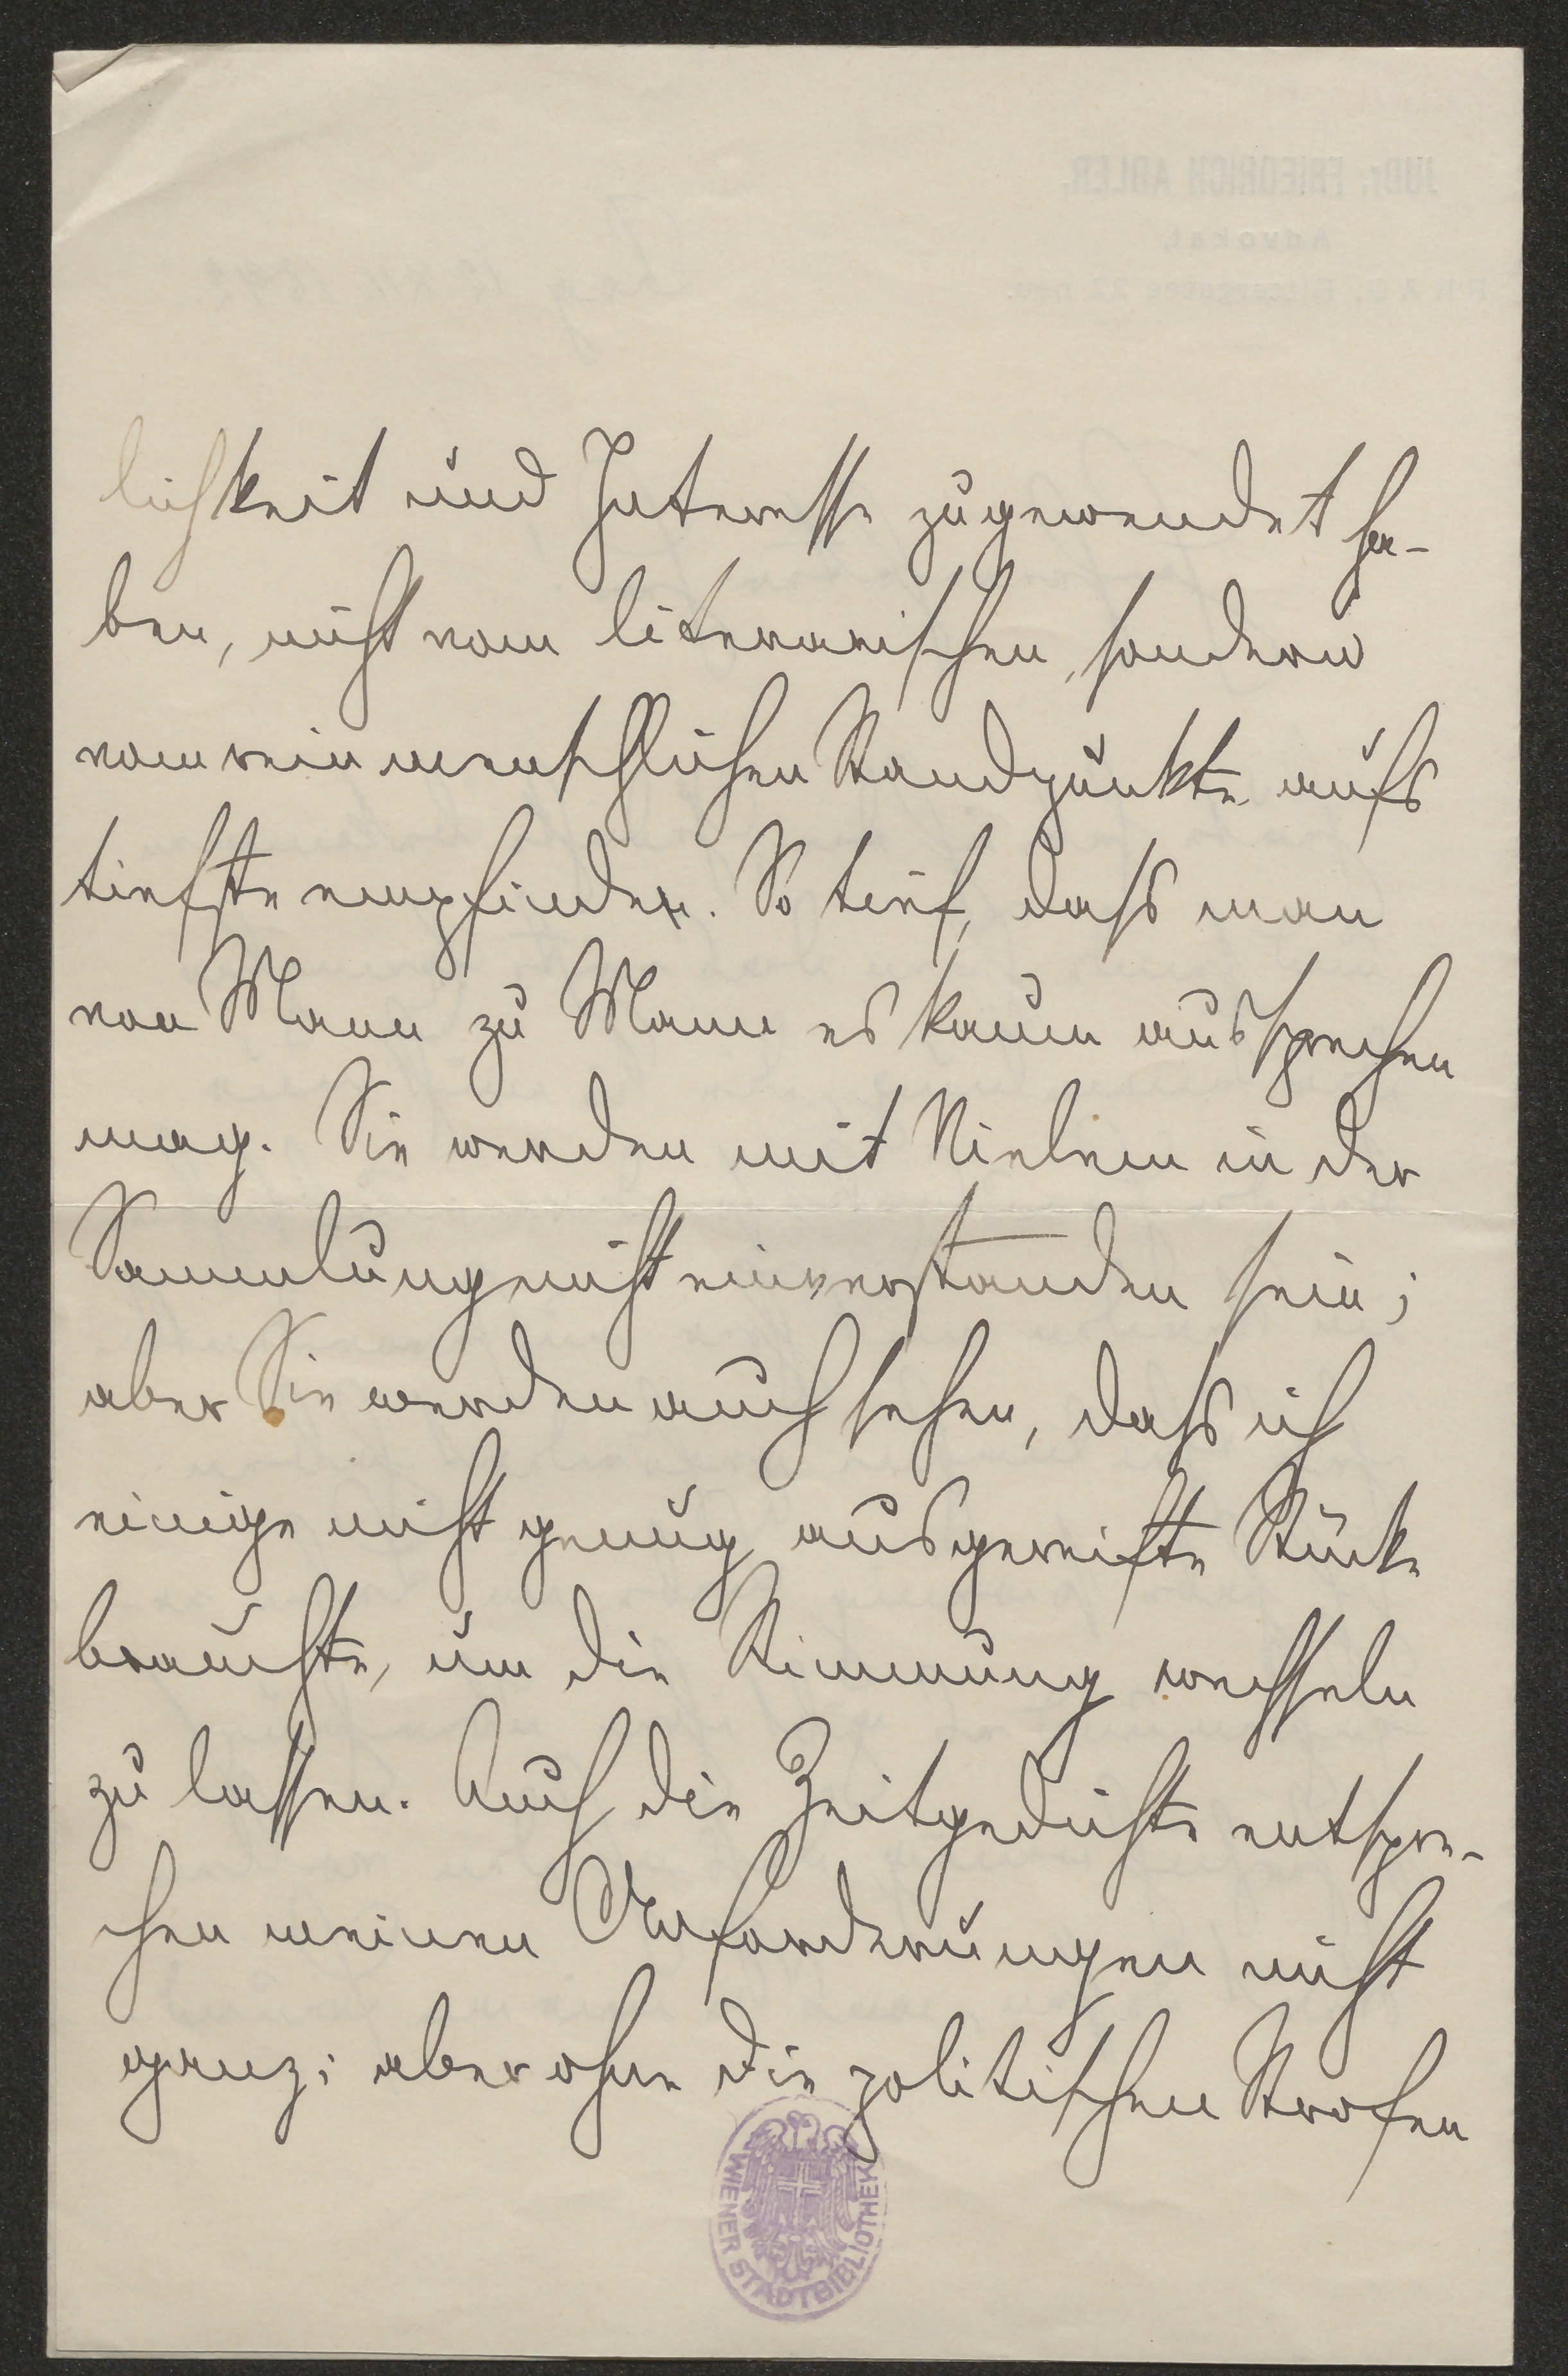 lichkeit und Interesse zugewendet ha-
ben, nicht vom literarischen, sondern
vom rein menschlichen Standpunkte aufs
tiefste empfinden. So tief, dass man
von Mann zu Mann es kaum aussprechen
mag. Sie werden mit Vielem in der
Sammlung nicht einverstanden sein;
aber Sie werden auch sehen, dass ich
einige nicht genug ausgereifte Stücke
brauchte, um die Stimmung wechseln
zu lassen. Auch die Zeitgedichte entspre-
chen meinen Anforderungen nicht
ganz; aber ohne die politischen Strofen
WIENER STADTBIBLIOTHEK
JUDr. FRIEDRICH ADLER.
Advokat